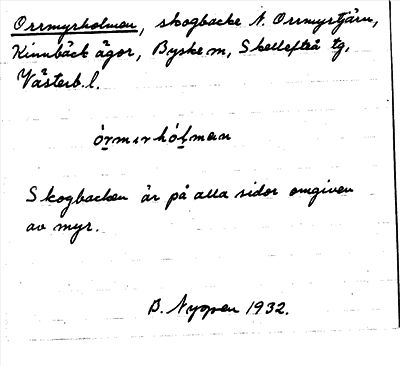 Orrmyrholmen, skogbacke N. Orrmystjärn,
Kinnbäck ägor, Byske sn, Skellefteå tg,
Västerb. l.
órmırhólmen
Skogbacken är på alla sidor omgiven
av myr.
B. Nygren 1932.